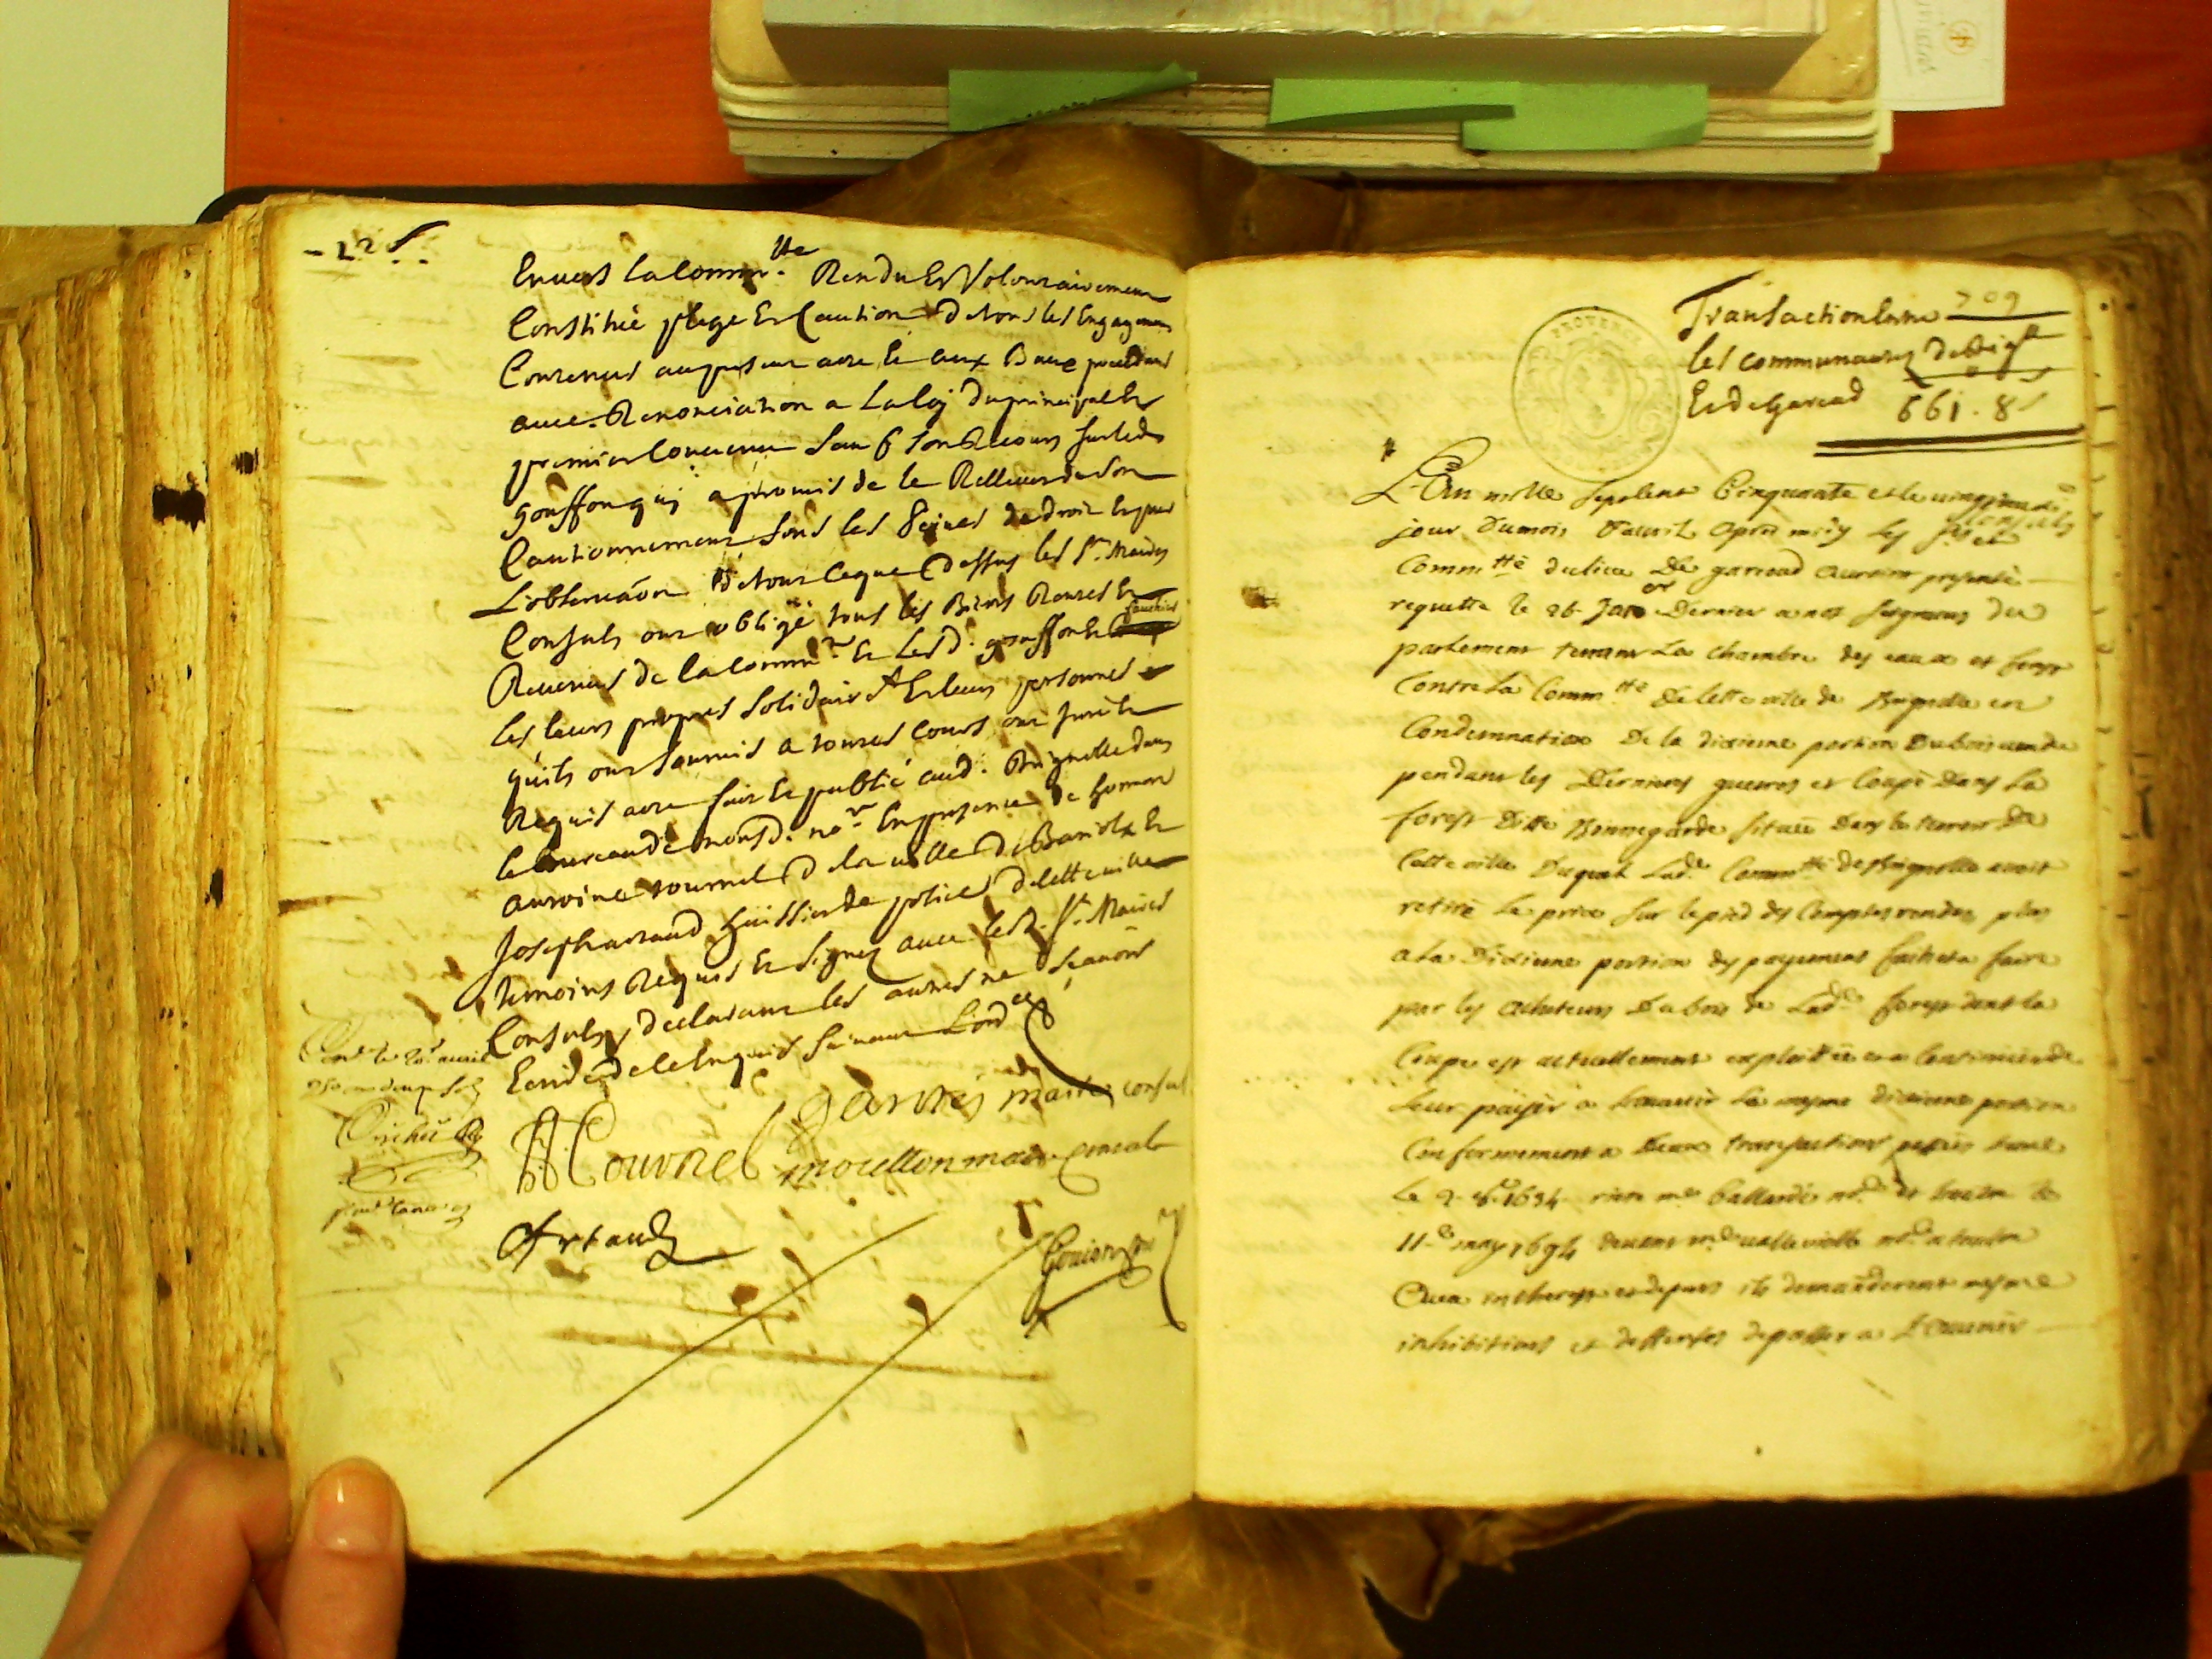 Envers la Comm.tte Rendu Et Volontairement
Constitué plege Et Caution de tous les Engagemens
Contenus au present acte Et aux Baux precedans
avec Renonciation a La loy du principal Et
premier Convenu sauf son Recours sur led.
gouffon quj a promis de le Rellever de son
Cautionnement sous les peines de droit Et pour
L'observâon de tout ceque Dessus les Srs Maires
Consuls ont obligé tous les Biens Rentes Et
Revenus de la Comm.té Et Lesd. gouffon Et
les leurs propres solidairet Et leurs personnes
quils ont soumis a toutes Cours ont juré Et
Requis acte fait Et publié aud. Brignolle dans
le bureau de nousd. nore En presence de honnore
antoine tournel de la ville de Bariols Et
Joseph artaud huissier de police de cette ville
temoins Requis Et signez avec lesd. Srs Maires
Consuls, declarant les autres ne sçavoir
Ecride de ce Enquis suivant L'ordce
garnies maire consul
H Tournel morelton maire consul
Artaud
Transaction Entre 709
les communautes de Brigle
Et de Gareoud 661. 8s
L'An mille sept cent Cinquante et le
jour du mois d'avril apres midy les consuls
Commtté du lieu De gareoud auroint presenté
requette le 26 Janer Dernier a nos seigneurs du
parlement tenant La chambre des eaux et forest
Contre La Commtté De Cette ville de Brignolle en
Condemnation De la dixieme portion Du bois vendu
pendant les Dernieres guerres et Coupé Dans La
forest Ditte situee Dans le terroir De
Cette ville Duquel Lade Commtté de Brignolle avoit
retiré Le prix sur le pied des Comptes rendus, plus
a La Dixieme portion des payemens faits et a faire
par les acheteurs Du bois de Lade forest dont la
Coupe est actuellement exploittée et a Continüer de
Leur païer a L'avenir La mesme dixieme portion
Conformement a Deux transactions passées L'une
Le 2. 8bre 1634 riere me Ballardi nore et l'autre le
11e may 1694 devant me nore a toulon
Avec interest et depens ils demanderent mesme
inhibitions et deffenses de passer a L'avenir